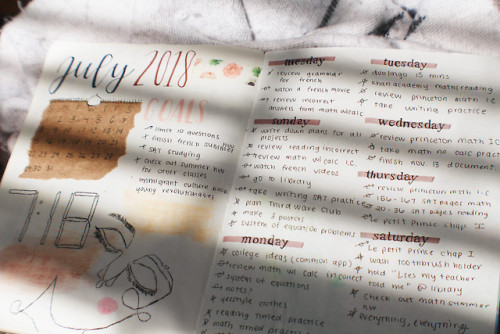 july 2018
GOALS
finish french subtitles
SAT studying
check out summer HW
for other classes
immigrant culture
young revolutionaries
7:18
tuesday
review grammar
for french
watch a french movie
review incorrect
answers from math w/calc
sunday
write down plans for all
projects
review reading incorrect
review math w/ calc i.c.
watch french videos
go to library
take writing SAT practice
plan Third Wave Club
make 3 posters
system of equation problems
monday
college ideas (common app)
review math w/ calc incorrect
systems of equations
notes
lifestyle notes
reading timed practice
math timed practice
tuesday
duolingo 15 mins
khan academy math reading
review princeton math IC
take writing practice
wednesday
review princeton math IC
take math no calc
finish nov. 13 document
thursday
review princeton math i.c.
166-167 SAT pages math
20-36 SAT pages reading
le petit prince chap I
saturday
Le petit prince chap I
wash toothbrush holder
hold "Lies my teacher
told me" @ library
check out math summer
HW
everything, everything